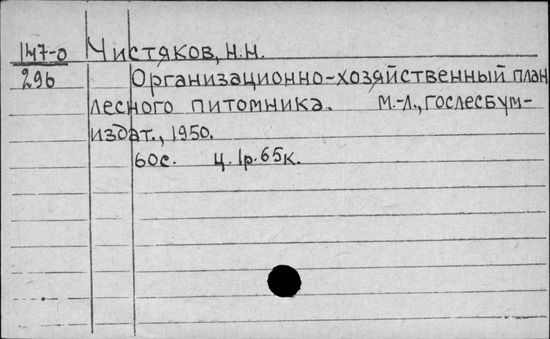 147-0 Чистяков, Н.Н.
296 Организационно-хозяйственный план
лесного питомника. М.-Л., Гослесбум-
издат., 1950.
60с. ц. 1р. 65к.